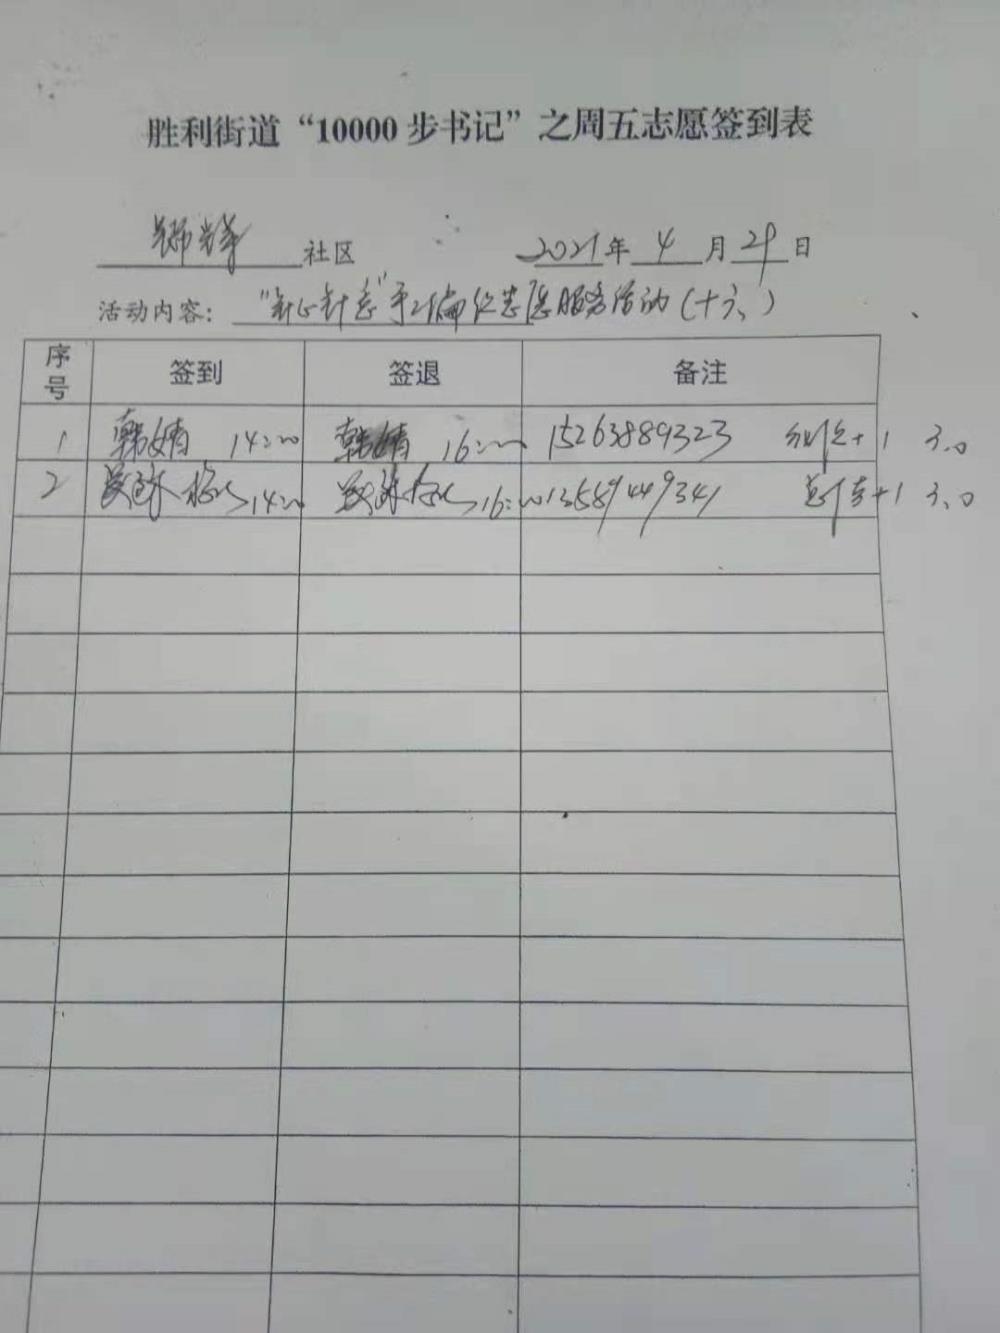 胜利街道“10000步书记”之周五志愿签到表
锦辉 社区 2021年4月29日
活动内容: 手工编织志愿服务活动(十六)
序号 签到 签退 备注
1 韩婧 14:00 韩婧 16:00 15263889323 +1 3.0
2 14:00 16:00 13589449341 +1 3.0